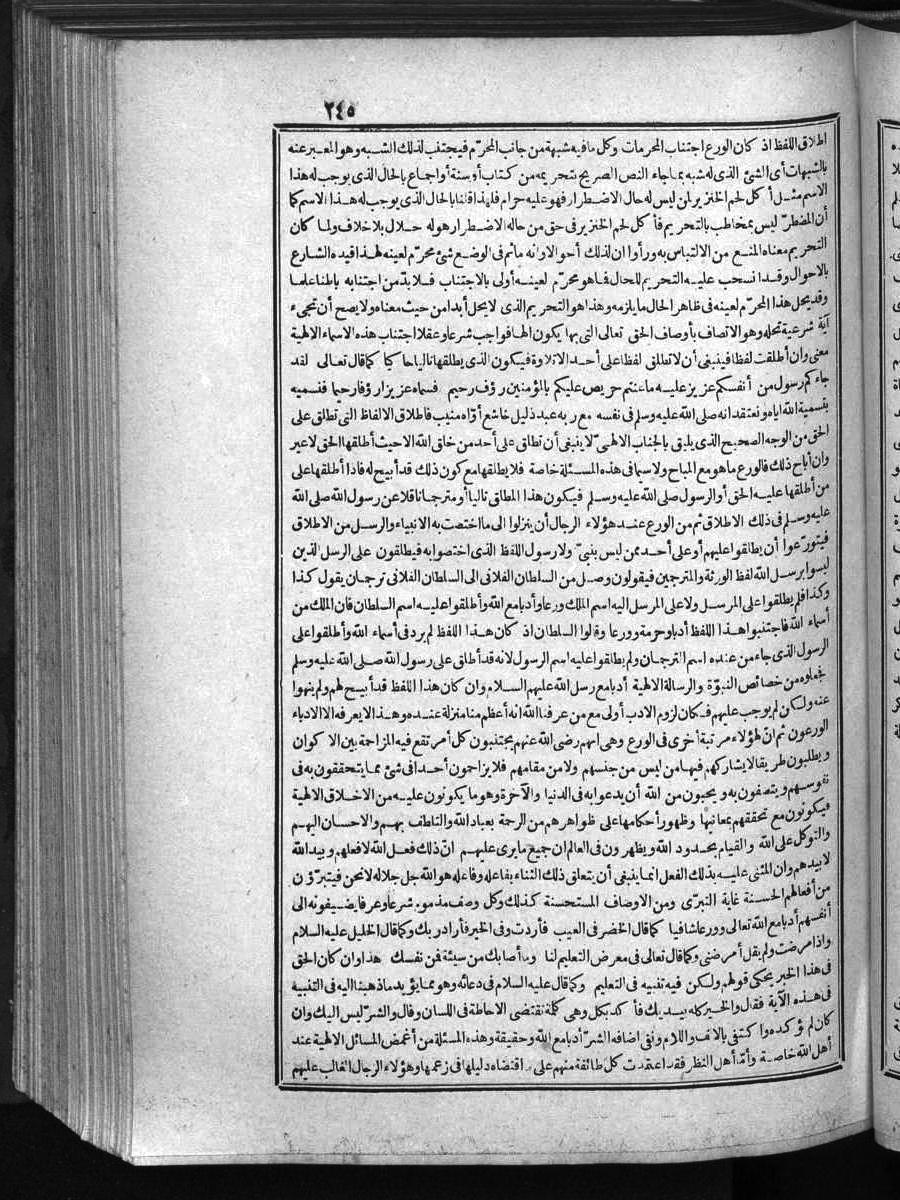 ٢٤٥
اطلاق اللفظ اذ كان الورع اجتناب المحرمات وكل ما فيه شبهة من جانب المحرّم فيجتنب لذلك الشبه وهو المعبر عنه
بالشبهات أى الشئ الذى له شبه بما جاء النص الصريح بتحريمه من كتاب أو سنة أو اجماع بالحال الذى يوجب له هذا
الاسم مثل أكل لحم الخنزير لمن ليس له حال الاضطرار فهو عليه حرام فلهذا قلنا بالحال الذى يوجب له هذا الاسم كما
أن المضطرّ ليس بمخاطب بالتحريم فأكل لحم الخنزير فى حق من حاله الاضطرار هو له حلال بلا خلاف ولما كان
التحريم معناه المنع من الالتباس به ورأوا ان لذلك أحوالا وانه ما ثم فى الوضع شئ محرّم لعينه لهذا قيده الشارع
بالاحوال وقد انسحب عليه التحريم للحال فما هو محرّم لعينه أولى بالاجتناب فلا بدّ من اجتنابه باطنا علما
وقد يحل هذا المحرّم لعينه فى ظاهر الحال ما يلزمه وهذا هو التحريم الذى لا يحل أبدا من حيث معناه ولا يصح أن تجىء
آية شرعية تحله وهو الاتصاف بأوصاف الحق تعالى التى بها يكون الها فواجب شرعا وعقلا اجتناب هذه الاسماء الالهية
معنى وان أطلقت لفظا فينبغى أن لا تطلق لفظا على أحد الا تلاوة فيكون الذى يطلقها تاليا حاكيا كما قال تعالى لقد
جاءكم رسول من أنفسكم عزيز عليه ما عنتم حريص عليكم بالمؤمنين رؤف رحيم فسماه عزيزا رؤفا رحيما فنسميه
بتسمية الله اياه ونعتقد انه صلى الله عليه وسلم فى نفسه مع ربه عبد ذليل خاشع أوّاه منيب فاطلاق الالفاظ التى تطلق على
الحق من الوجه الصحيح الذى يليق بالجناب الالهىّ لا ينبغى أن تطلق على أحد من خلق الله الا حيث أطلقها الحق لا غير
وان أباح ذلك فالورع ما هو مع المباح ولا سيما فى هذه المسئلة خاصة فلا يطلقها مع كون ذلك قد أبيح له فاذا أطلقها على
من أطلقها عليه الحق أو الرسول صلى الله عليه وسلم فيكون هذا المطلق تاليا أو مترجما ناقلا عن رسول الله صلى الله
عليه وسلم فى ذلك الاطلاق ثم من الورع عند هؤلاء الرجال أن ينزلوا الى ما اختصت به الانبياء والرسل من الاطلاق
فيتورّعوا أن يطلقوا عليهم أو على أحد ممن ليس بنبىّ ولا رسول اللفظ الذى اختصوا به فيطلقون على الرسل الذين
ليسوا برسل الله لفظ الورثة والمترجمين فيقولون وصل من السلطان الفلانى الى السلطان الفلانى ترجمان يقول كذا
وكذا فلم يطلقوا على المرسل ولا على المرسل اليه اسم الملك ورعا وأدبا مع الله وأطلقوا عليه اسم السلطان فان الملك من
أسماء الله فاجتنبوا هذا اللفظ أدبا وحرمة وورعا وقالوا السلطان اذ كان هذا اللفظ لم يرد فى أسماء الله وأطلقوا على
الرسول الذى جاء من عنده اسم الترجمان ولم يطلقوا عليه اسم الرسول لانه قد أطلق على رسول الله صلى الله عليه وسلم
فجعلوه من خصائص النبوّة والرسالة الالهية أدبا مع رسل الله عليهم السلام وان كان هذا اللفظ قد أبيح لهم ولم ينهوا
عنه ولكن لم يوجب عليهم فكان لزوم الادب أولى مع من عرفنا الله انه أعظم منا منزلة عنده وهذا لا يعرفه الا الادباء
الورعون ثم انّ لهؤلاء مرتبة أخرى فى الورع وهى انهم رضى الله عنهم يجتنبون كل أمر تقع فيه المزاحمة بين الاكوان
ويطلبون طريقا لا يشاركهم فيها من ليس من جنسهم ولا من مقامهم فلا يزاحمون أحدا فى شئ مما يتحققون به فى
نفوسهم ويتصفون به ويحبون من الله أن يدعوا به فى الدنيا والآخرة وهو ما يكونون عليه من الاخلاق الالهية
فيكونون مع تحققهم بمعانيها وظهور أحكامها على ظواهرهم من الرحمة بعباد الله والتلطف بهم والاحسان اليهم
والتوكل على الله والقيام بحدود الله ويظهرون فى العالم ان جميع ما يرى عليهم انّ ذلك فعل الله لا فعلهم وبيد الله
لا بيدهم وان المثنى عليه بذلك الفعل انما ينبغى أن يتعلق ذلك الثناء بفاعله وفاعله هو الله جل جلاله لا نحن فيتبرّؤن
من أفعالهم الحسنة غاية التبرّى ومن الاوصاف المستحسنة كذلك وكل وصف مذموم شرعا وعرفا يضيفونه الى
أنفسهم أدبا مع الله تعالى وورعا شافيا كما قال الخضر فى العيب فأردت وفى الخير فأراد ربك وكما قال الخليل عليه السلام
واذا مرضت ولم يقل أمرضنى وكما قال تعالى فى معرض التعليم لنا وما أصابك من سيئة فمن نفسك هذا وان كان الحق
فى هذا الخبر يحكى قولهم ولكن فيه تنبيه فى التعليم وكما قال عليه السلام فى دعائه وهو مما يؤيد ما ذهبنا اليه فى التنبيه
فى هذه الآية فقال والخير كله بيديك فأكد بكل وهى كلمة تقتضى الاحاطة فى اللسان وقال والشرّ ليس اليك وان
كان لم يؤكده واكتفى بالالف واللام ونفى اضافه الشرّ أدبا مع الله وحقيقة وهذه المسئلة من أغمض المسائل الالهية عند
أهل الله خاصة وأمّا أهل النظر فقد اعتمدت كل طائفة منهم على ما اقتضاه دليلها فى زعمها وهؤلاء الرجال الغالب عليهم